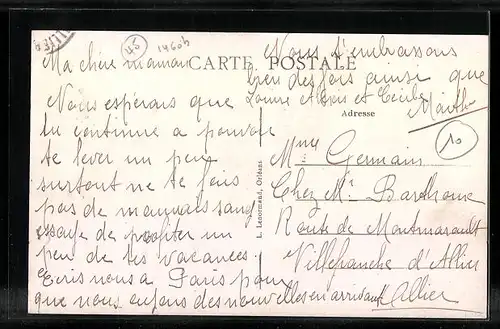 45
19606
CARTE POSTALE
Ma chère maman
Nous espérons que
tu continue a pouvoir
te lever un peu
surtout ne te fais
pas de mauvais sang
essaye de profiter un
peu de tes vacances
Ecris nous a Paris pour
que nous ayons des nouvelles en arrivant
Nous t'embrassons
bien des fois ainsi que
et Cécile
Adresse
10
L. Lenormand, Orléans
Mme Germain
Chez Mr
Route de Montmarault
Villefranche d'Allier
Allier